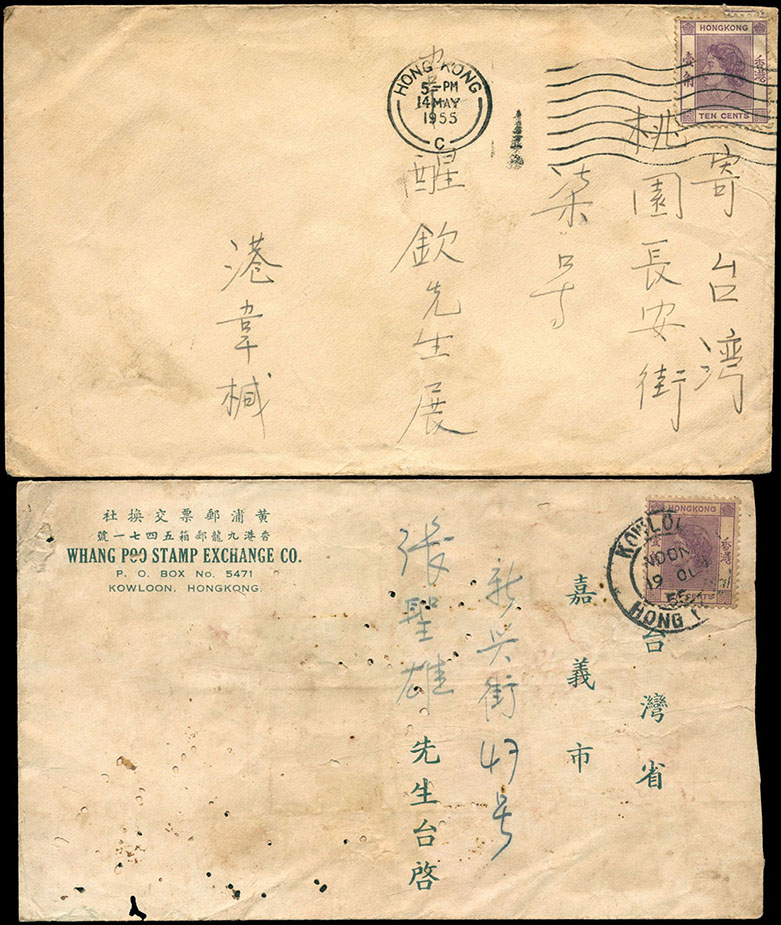 HONGKONG
壹角
香港
TEN CENTS
HONG KONG
5-PM
14 MAY
1955
C
寄台灣
桃園長安街
柒号
醒欽先生展
港韋椷
黃浦郵票交換社
香港九龍郵箱五四七一號
WHANG POO STAMP EXCHANGE CO.
P. O. BOX No. 5471
KOWLOON, HONGKONG.
HONGKONG
香港
NOON
19
55
HONG
台灣省
嘉義市
新兴街47号
張聖雄先生台啓